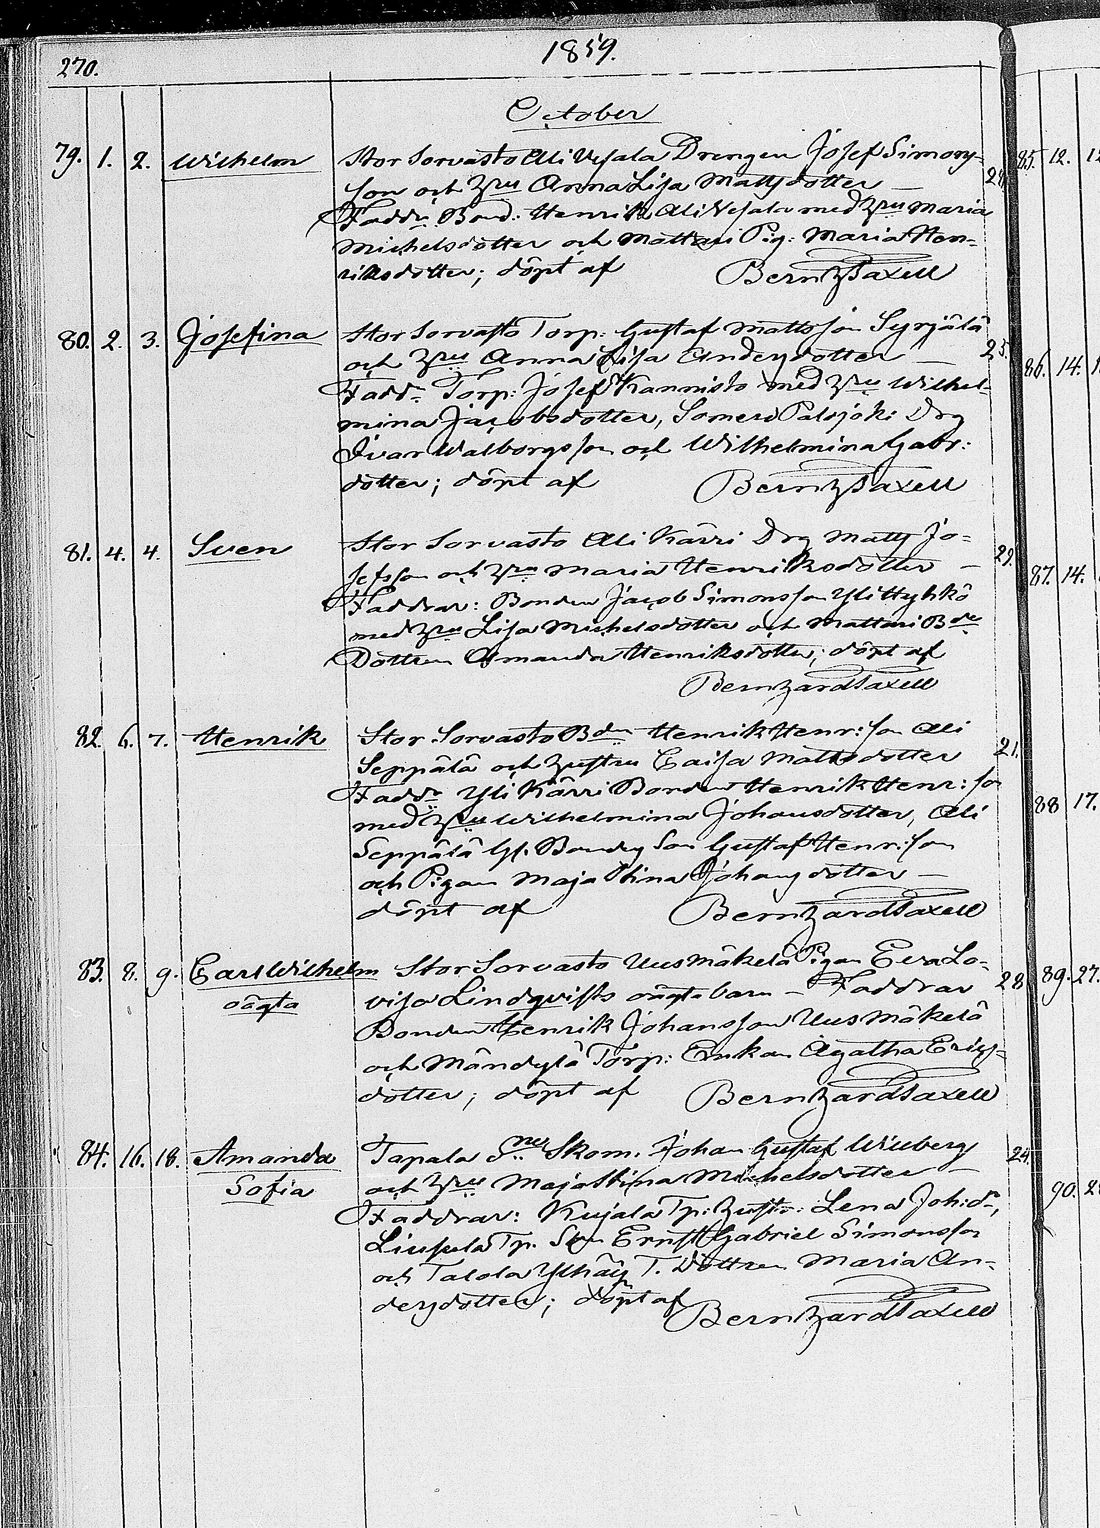 270.
1859.
October
79. 1. 2. Wilhelm Stor Sorvasto Ali Vesala Drengen Josef Simons-
son och Hru Anna Lisa Mattsdotter — 28
Faddr. Bond. Henrik Ali Vesala med Hru Maria
Michelsdotter och Mattari Pig: Maria Hen-
riksdotter; döpt af Bernh Saxell
80. 2. 3. Josefina Stor Sorvasto Torp: Gustaf Mattsson Syrjälä
och Hru Anna Lisa Andersdotter — 25.
Fadd. Torp: Josef Kannisto med Hru Wilhel-
mina Jacobsdotter, Somero Palojoki Drg
Ivar Walborgsson och Wilhelmina Gabr:
dotter; döpt af Bernh Saxell
81. 4. 4. Sven Stor Sorvasto Ali Kärri Drg Matts Jo-
sefsson och Hru Maria Henriksdotter — 29.
Faddrar: Bonden Jacob Simonsson Ylittyhkö
med Hru Lisa Michelsdotter och Mattari Bde
Dottren Amanda Henriksdotter; döpt af
Bernhard Saxell
82. 6. 7. Henrik Stor Sorvasto Bden Henrik Henr:son Ali
Seppälä och hustru Caisa Mattsdotter 21.
Faddr Yli Kärri Bonden Henrik Henr:son
med Hru Wilhelmina Johansdotter, Ali
Seppälä Gl. Bondes Son Gustaf Henr:son
och Pigan Maja Stina Johansdotter —
döpt af Bernhard Saxell
83. 8. 9. Carl Wilhelm Stor Sorvasto Uusmäkelä Pigan Eva Lo-
oägta visa Lindqvists oägta barn — Faddrar 28
Bonden Henrik Johansson Uusmäkelä
och Mändylä Torp: Enkan Agatha Erics-
dotter; döpt af Bernhard Saxell
84. 16. 18. Amanda Tapala Skom. Johan Gustaf Willberg 24.
Sofia och Hru Maja Stina Michelsdotter —
Faddrar: Kujala Tp: hustr: Lena Joh:dr,
Liupula Tp. Son Ernst Gabriel Simonsson
och Talola Ylhäis T. Dottren Maria An-
dersdotter; döpt af Bernhard Saxell
85. 12.
86. 14.
87. 14.
88 17.
89. 27.
90.